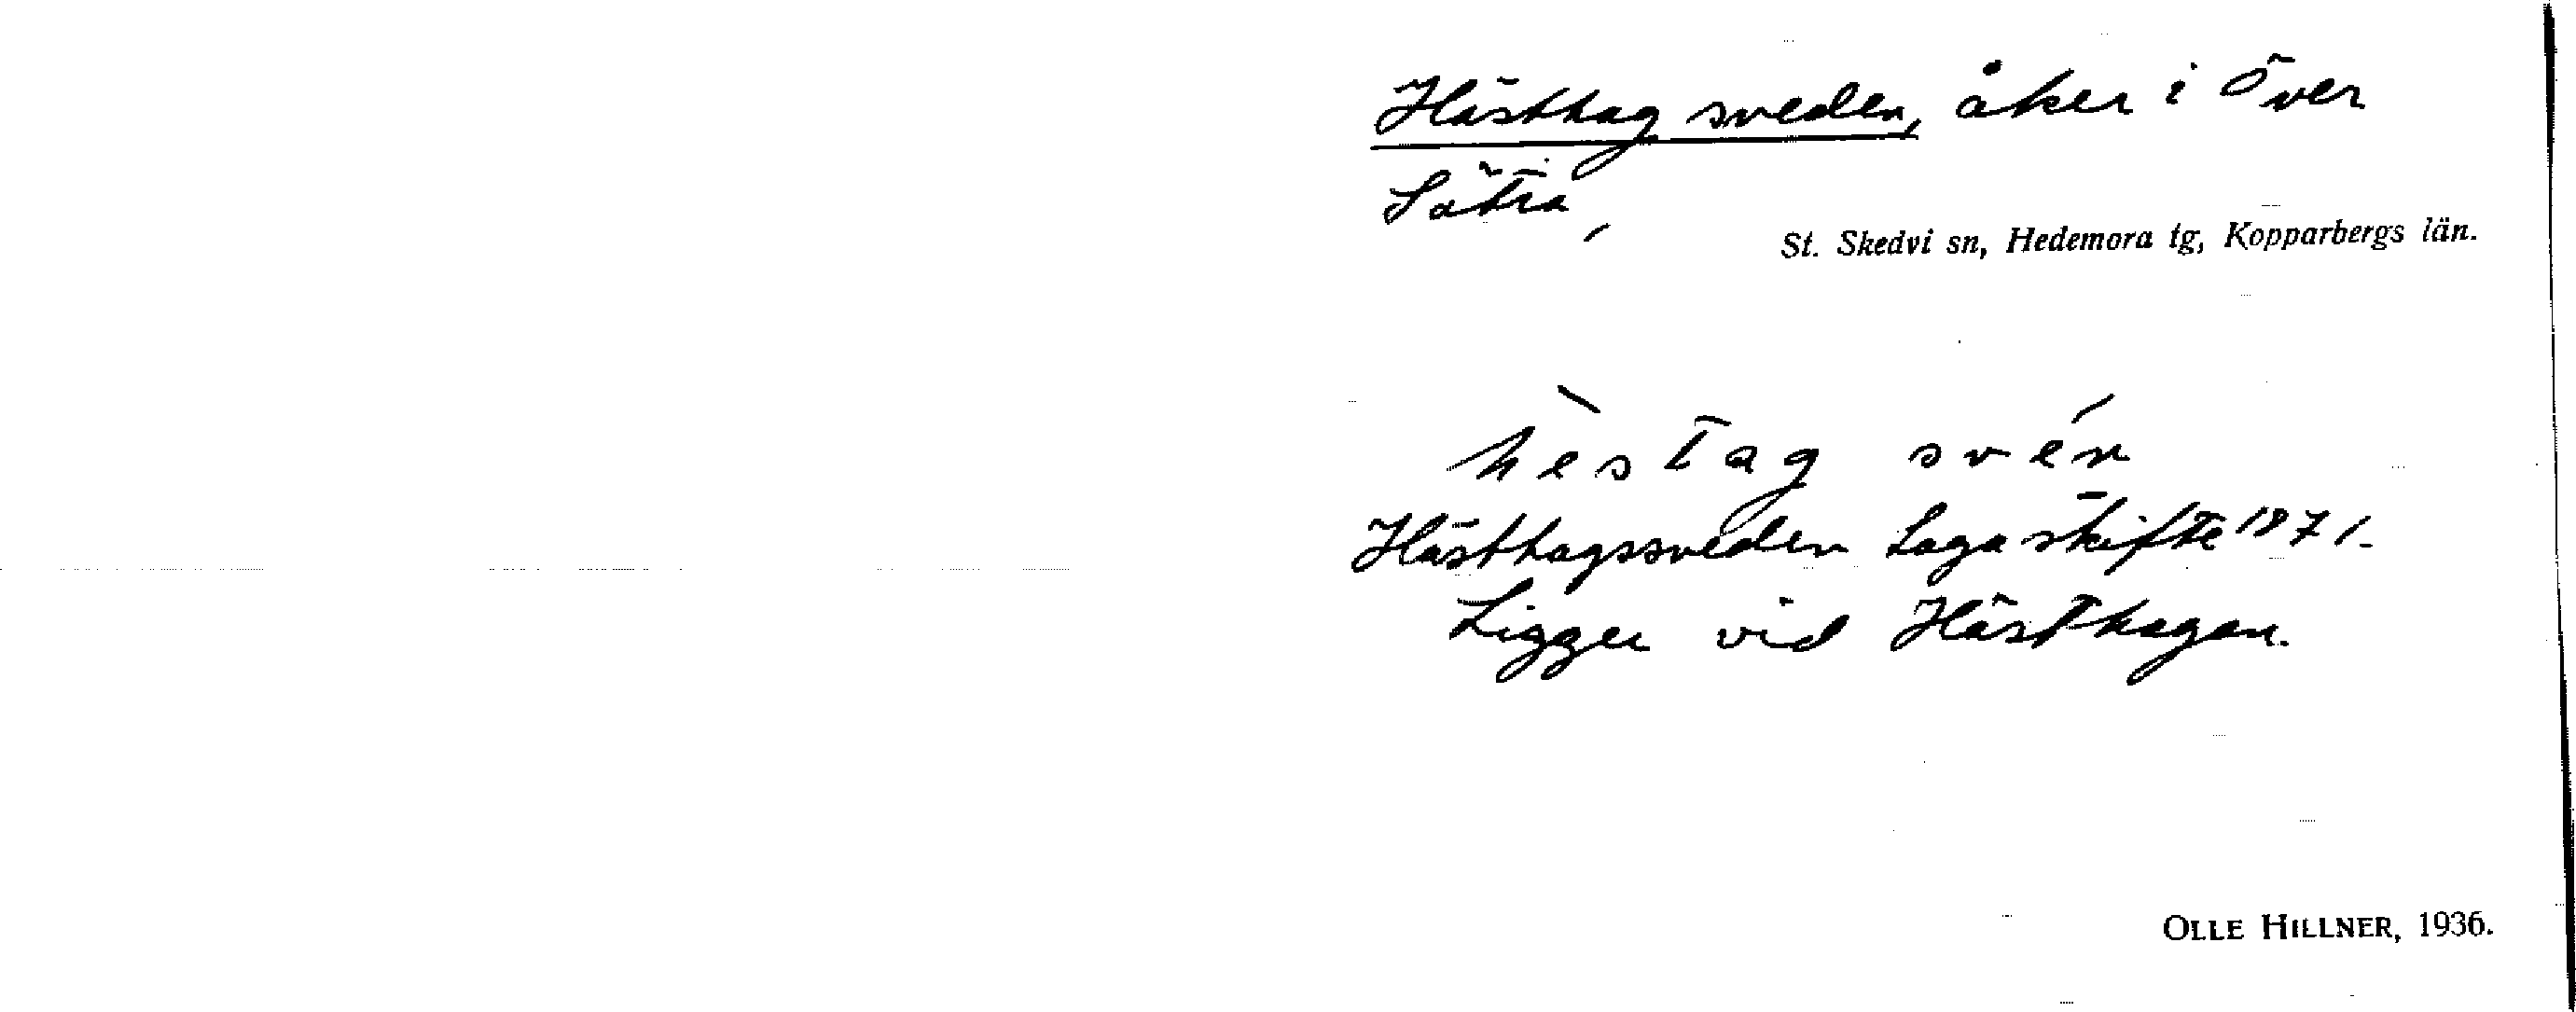 Hästhag sveden, åker i Över
Sätra,
St. Skedvi sn, Hedemora tg, Kopparbergs län.
hèstag svén
Hästhagssveden Laga skifte 1871.
Ligger vid Hästhagen.
OLLE HILLNER, 1936.